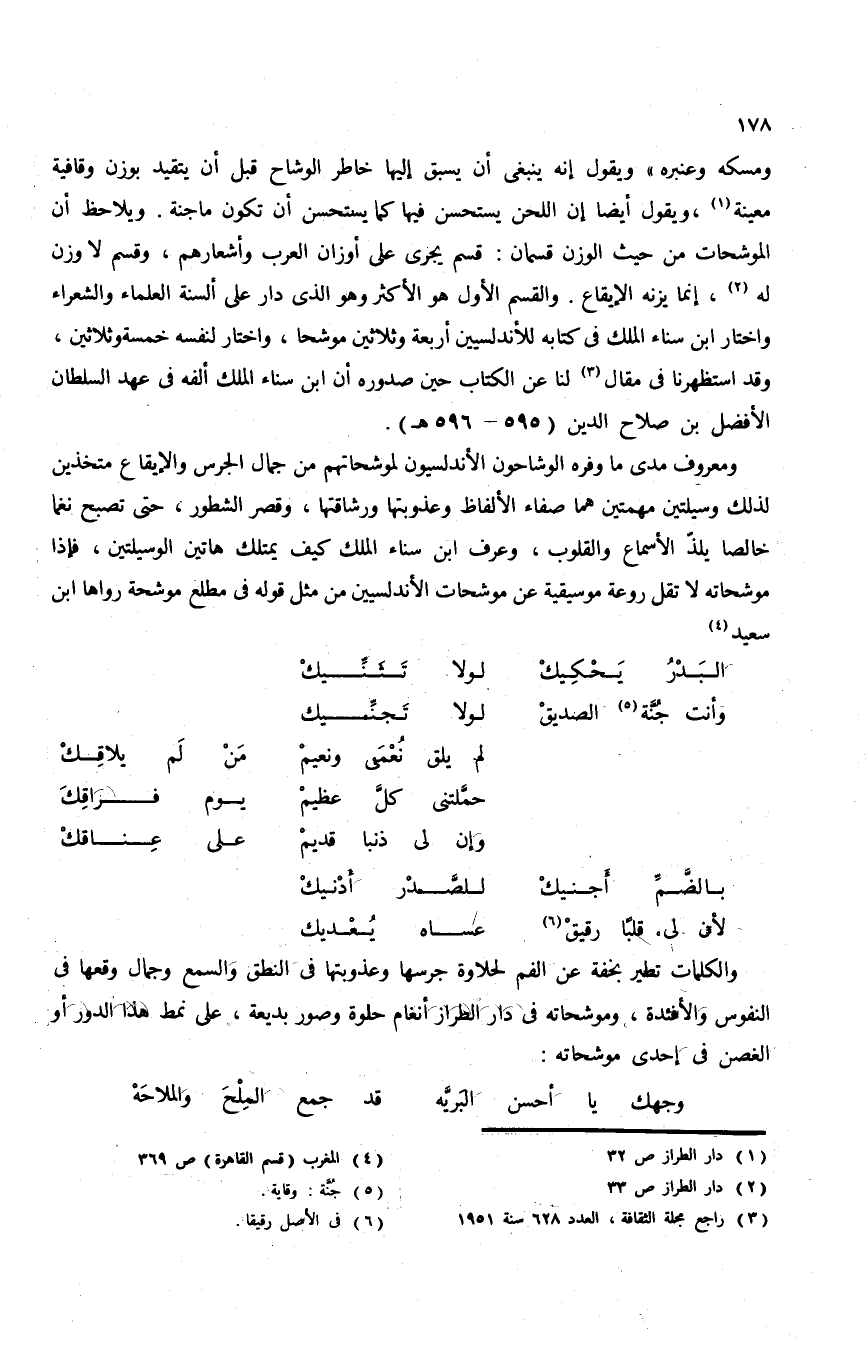 ١٧٨
ومسكه وعنبره » ويقول إنه ينبغى أن يسبق إليها خاطر الوشاح قبل أن يتقيد بوزن وقافية
معينة(١) ، ويقول أيضا إن اللحن يستحسن فيها كما يستحسن أن تكون ماجنة . ويلاحظ أن
الموشحات من حيث الوزن قسمان : قسم يجرى على أوزان العرب وأشعارهم ، وقسم لا وزن
له (٢) ، إنما يزنه الإيقاع . والقسم الأول هو الأكثر وهو الذى دار على ألسنة العلماء والشعراء
واختار ابن سناء الملك فى كتابه للأندلسيين أربعة وثلاثين موشحا ، واختار لنفسه خمسةوثلاثين ،
وقد استظهرنا فى مقال(٣) لنا عن الكتاب حين صدوره أن ابن سناء الملك ألفه فى عهد السلطان
الأفضل بن صلاح الدين ( ٥٩٥ – ٥٩٦ هـ ) .
ومعروف مدى ما وفره الوشاحون الأندلسيون لموشحاتهم من جمال الجرس والإيقاع متخذين
لذلك وسيلتين مهمتين هما صفاء الألفاظ وعذوبتها ورشاقتها ، وقصر الشطور ، حتى تصبح نغما
خالصا يلذّ الأسماع والقلوب ، وعرف ابن سناء الملك كيف يمتلك هاتين الوسيلتين ، فإذا
موشحاته لا تقل روعة موسيقية عن موشحات الأندلسيين من مثل قوله فى مطلع موشحة رواها ابن
سعيد(٤)
البَدْرُ يَحْكِيكْ لولا تَثَنِّيكْ
وأنت جُنَّة(٥) الصديقْ لولا تَجنِّيك
لم يلق نُعْمَى ونعيمْ مَنْ لَم يلاقِكْ
حمَّلتنى كلَّ عظيمْ يوم فِرَاقِكَ
وإن لى ذنبا قديمْ على عِناقكْ
بالضَّمِّ أَجنيكْ للصَّدْر أدْنيكْ
لأن لى قلبًا رقيقْ(٦) عساه يُعْديك
والكلمات تطير بخفة عن الفم لحلاوة جرسها وعذوبتها فى النطق والسمع وجمال وقعها فى
النفوس والأفئدة ، وموشحاته فى دار الطراز أنغام حلوة وصور بديعة ، على نمط هذا الدور أو
الغصن فى إحدى موشحاته :
وجهك يا أحسن البَريَّه قد جمع المِلْحَ والملاحَهْ
(١) دار الطراز ص ٣٢
(٢) دار الطراز ص ٣٣
(٣) راجع مجلة الثقافة ، العدد ٦٢٨ سنة ١٩٥١
(٤) المغرب (قسم القاهرة) ص ٣٦٩
(٥) جُنَّة : وقاية .
(٦) فى الأصل رقيقا .